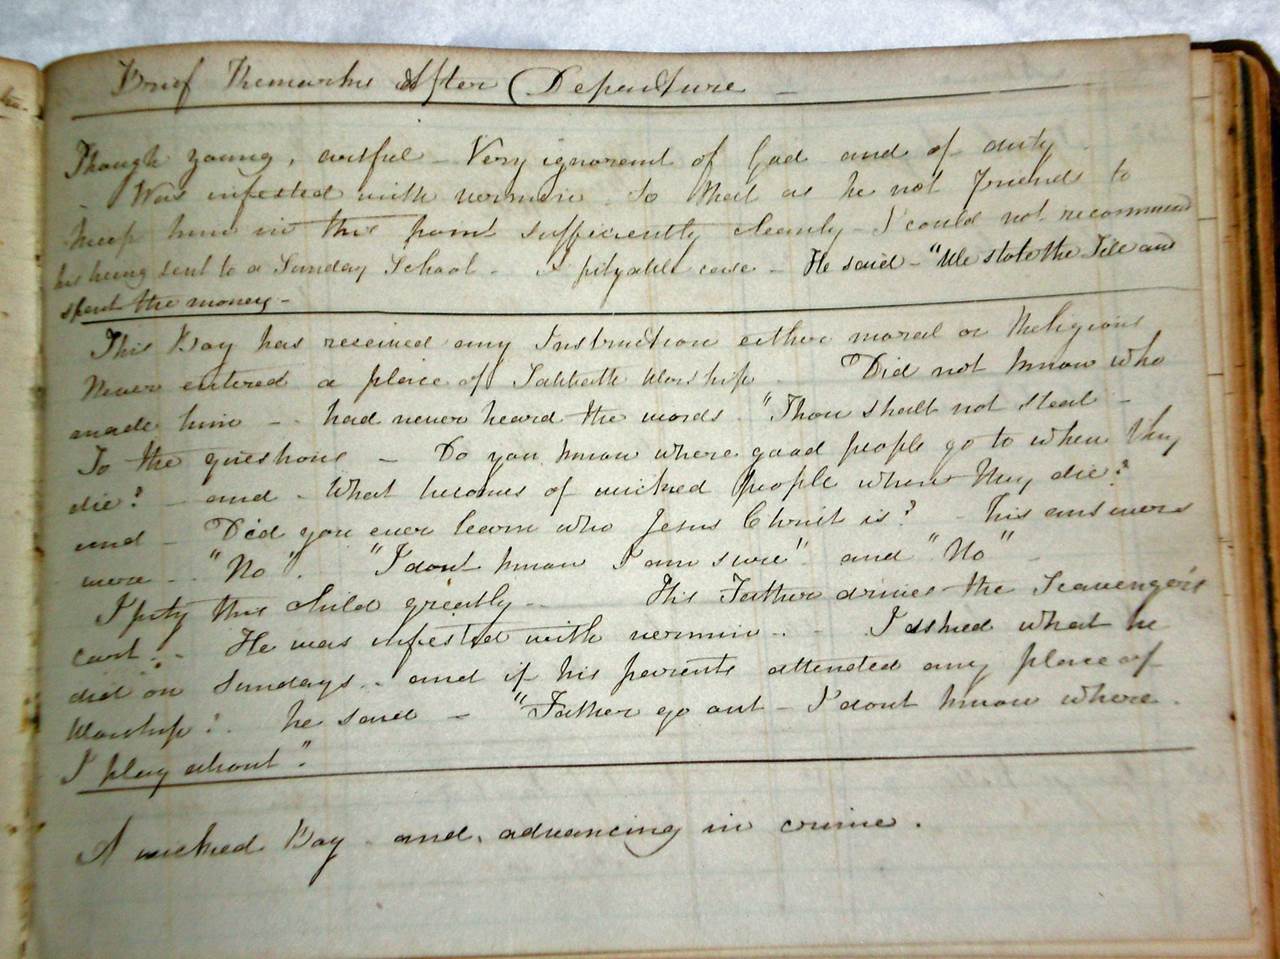 Brief Remarks After Departure -
Though young, artful - Very ignorant of God and of duty.
- Was infested with vermin. So that as he not friends to
keep him in this point sufficiently cleanly - I could not recommend
his being sent to a Sunday School - A pityable case - He said - "We stole the and
spent the money -
This Boy has received any Instruction either moral or Religious
Never entered a place of Sabbath Worship. Did not know who
made him - had never heard the words "Thou shalt not steal -
To the questions - Do you know where good people go to when they
die? - and - What becomes of wicked people when they die?
and - Did you ever learn who Jesus Christ is? - his answers
were - "No". "I dont know I am sure" and "No" -
I pity this child greatly - His Father drives the Scavenger's
cart - He was infested with vermin - I asked what he
did on Sundays - and if his parents attended any place of
Worship? he said - "Father go out - I dont know where.
I play about".
A wicked Boy and advancing in crime.